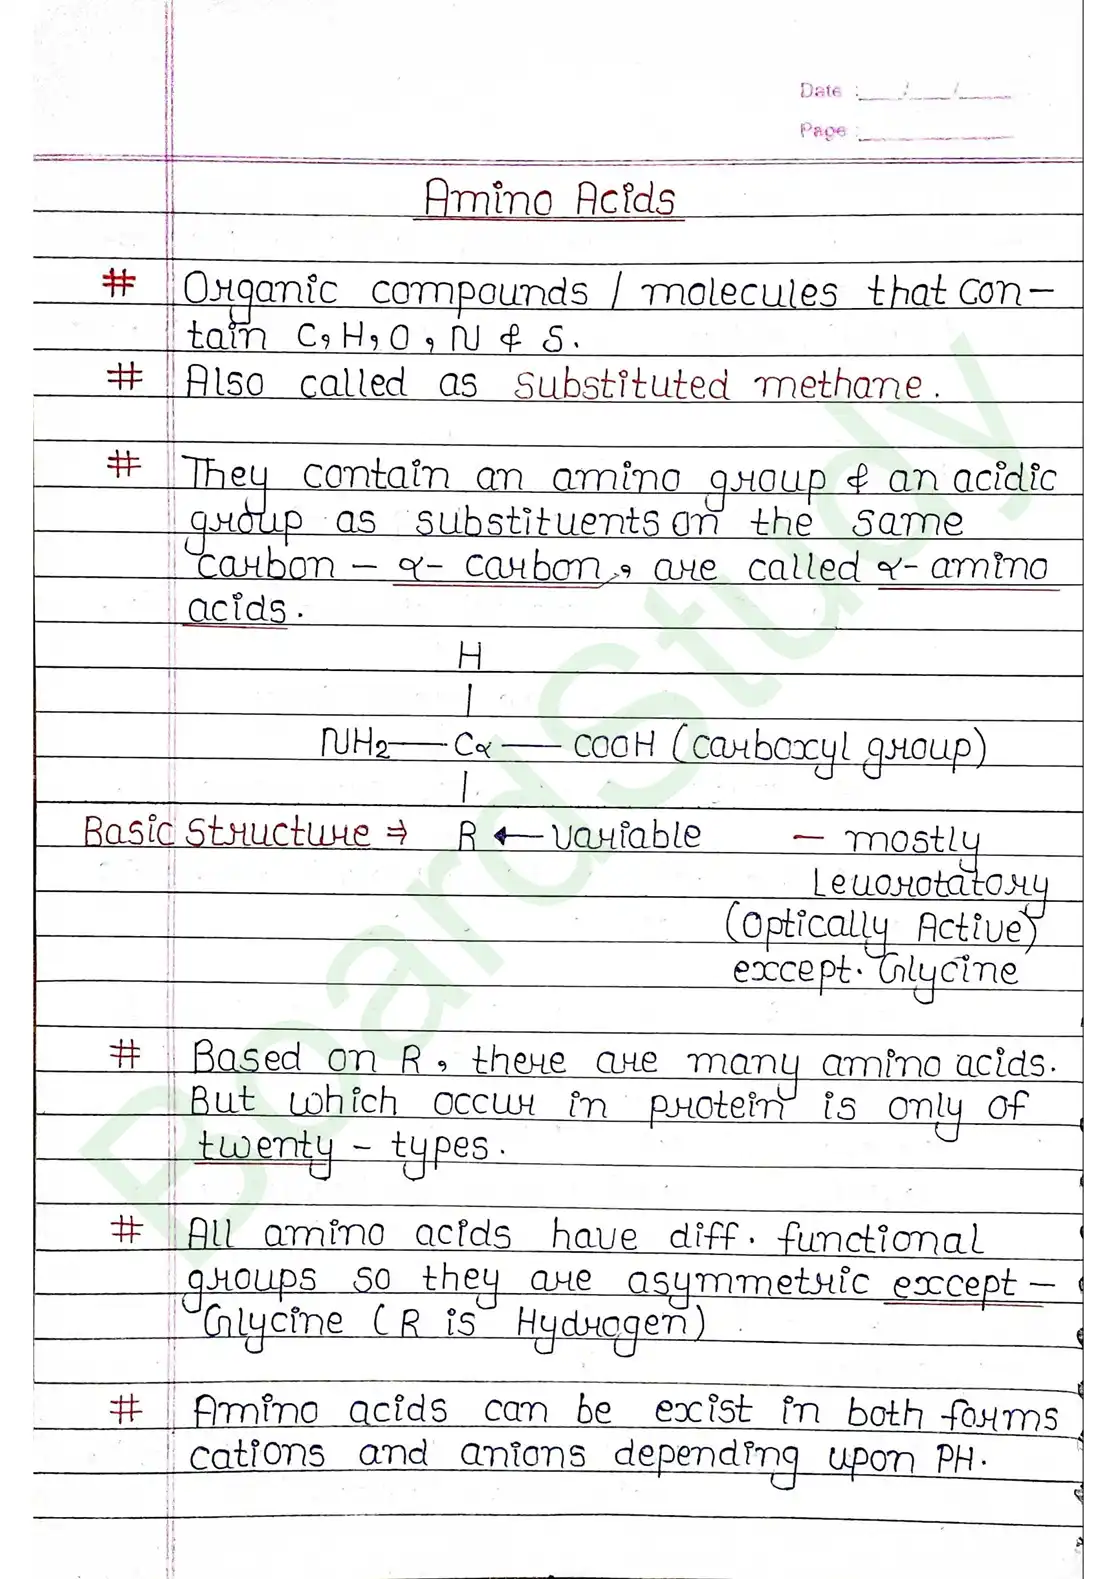 Date : __/__/__
Page : ______
Amino Acids
# Organic compounds / molecules that con-
tain C, H, O, N & S.
# Also called as substituted methane.
# They contain an amino group & an acidic
group as substituents on the same
carbon - α- carbon, are called α- amino
acids.
H
|
NH2—Cα—COOH (carboxyl group)
|
Basic Structure ⇒ R ← variable - mostly
Levorotatory
(Optically Active)
except. Glycine
# Based on R, there are many amino acids.
But which occur in protein is only of
twenty - types.
# All amino acids have diff. functional
groups so they are asymmetric except -
Glycine (R is Hydrogen)
# Amino acids can be exist in both forms
cations and anions depending upon PH.
BoardStudy